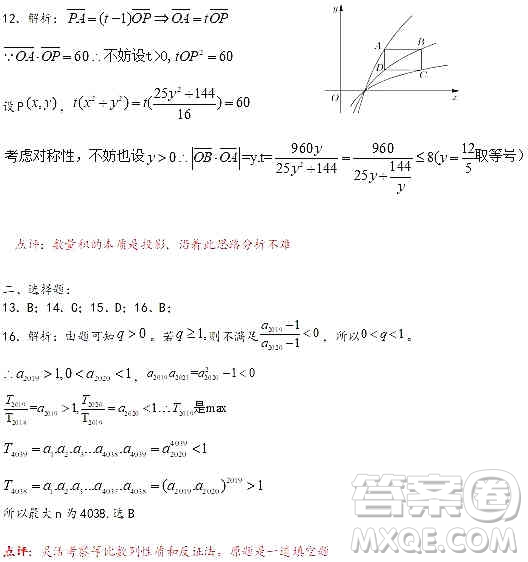 12、解析：$\overrightarrow{PA}=(t-1)\overrightarrow{OP}\Rightarrow\overrightarrow{OA}=t\overrightarrow{OP}$
A B D C O x y
$\because\overrightarrow{OA}\cdot\overrightarrow{OP}=60\therefore$不妨设$t>0,\ tOP^2=60$
设$P(x,y)$，$t(x^2+y^2)=t(\frac{25y^2+144}{16})=60$
考虑对称性，不妨也设$y>0\therefore|\overrightarrow{OB}\cdot\overrightarrow{OA}|=y.t=\frac{960y}{25y^2+144}=\frac{960}{25y+\frac{144}{y}}\le 8(y=\frac{12}{5}$取等号）
点评：数量积的本质是投影、沿着此思路分析不难
二、选择题：
13、B；14、C；15、D；16、B；
16、解析：由题可知$q>0$。若$q\ge 1$,则不满足$\frac{a_{2019}-1}{a_{2020}-1}<0$，所以$0<q<1$。
$\therefore a_{2019}>1,0<a_{2020}<1$，$a_{2019}a_{2021}=a_{2020}^2-1<0$
$\frac{T_{2019}}{T_{2018}}=a_{2019}>1,\frac{T_{2020}}{T_{2019}}=a_{2020}<1\therefore T_{2019}$是max
$T_{4039}=a_1.a_2.a_3...a_{4038}.a_{4039}=a_{2020}^{4039}<1$
$T_{4038}=a_1.a_2.a_3...a_{4037}.a_{4038}=(a_{2019}.a_{2020})^{2019}>1$
所以最大n为4038.选B
点评：灵活考察等比数列性质和反证法，原题是一道填空题
答案圈
MXQE.COM